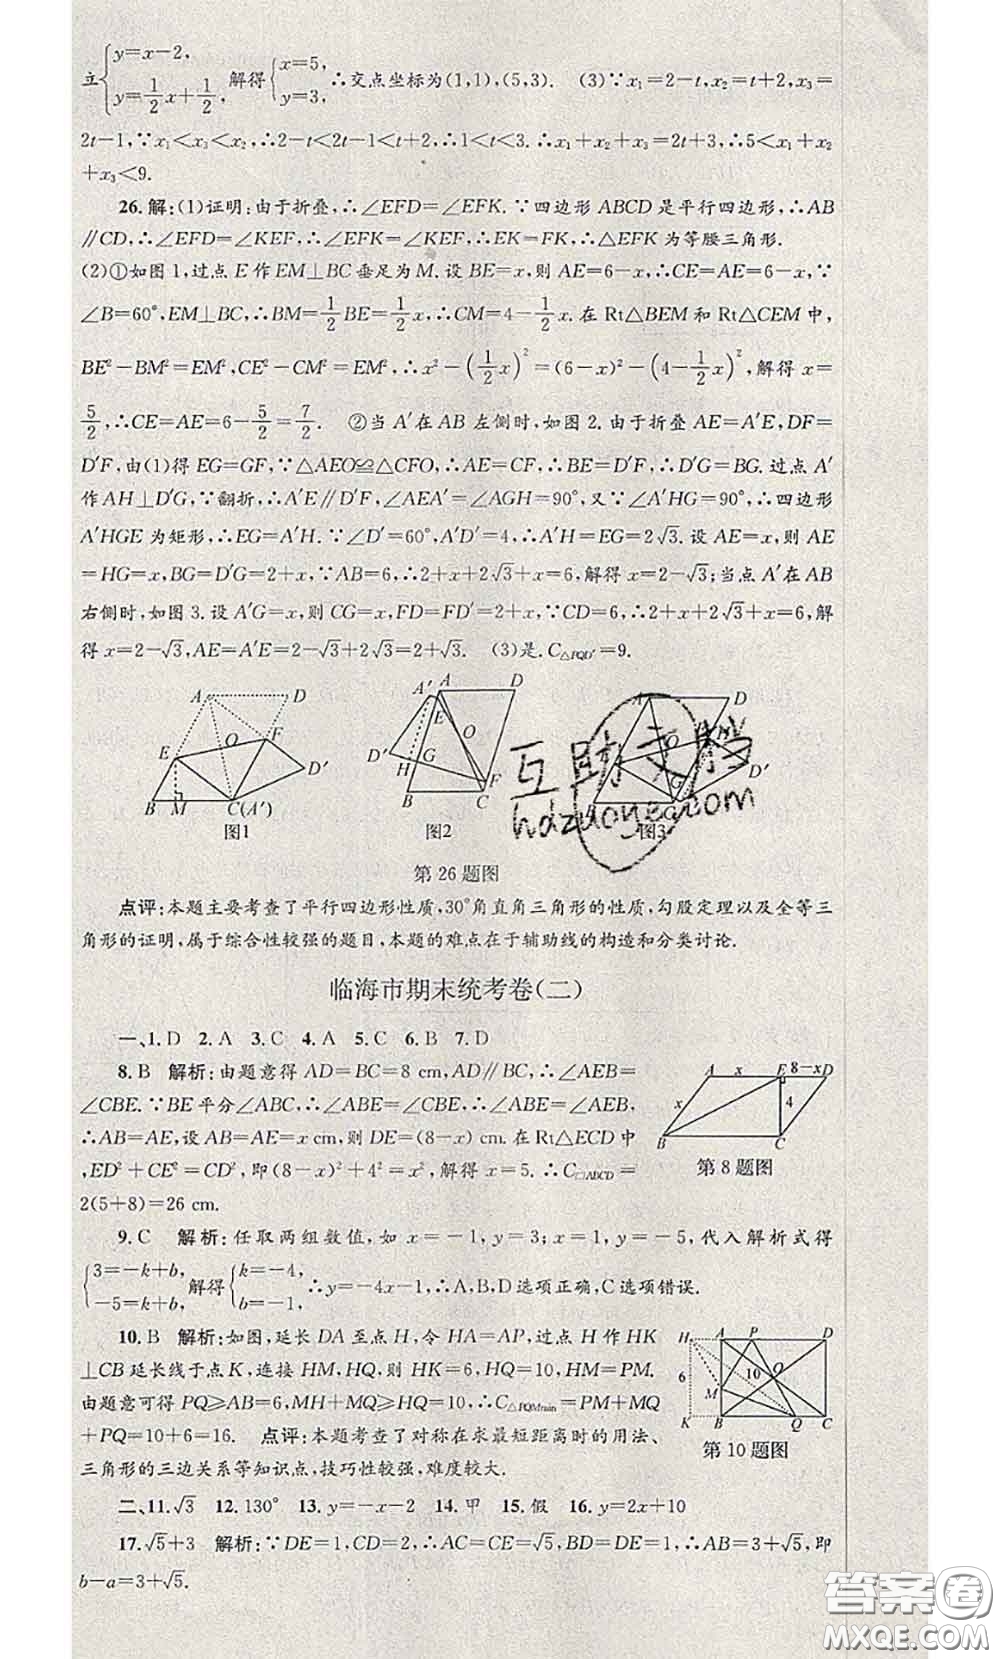 立{y=x-2, y=1/2x+1/2, 解得{x=5, y=3, ∴交点坐标为(1,1),(5,3). (3)∵x₁=2-t,x₂=t+2,x₃=
2t-1,∵x₁<x₃<x₂,∴2-t<2t-1<t+2,∴1<t<3.∴x₁+x₂+x₃=2t+3,∴5<x₁+x₂
+x₃<9.
26.解:(1)证明:由于折叠,∴∠EFD=∠EFK.∵四边形ABCD是平行四边形,∴AB
∥CD,∴∠EFD=∠KEF,∴∠EFK=∠KEF,∴EK=FK,∴△EFK为等腰三角形.
(2)①如图1,过点E作EM⊥BC垂足为M.设BE=x,则AE=6-x,∴CE=AE=6-x,∵
∠B=60°,EM⊥BC,∴BM=1/2BE=1/2x,∴CM=4-1/2x.在Rt△BEM和Rt△CEM中,
BE²-BM²=EM²,CE²-CM²=EM²,∴x²-(1/2x)²=(6-x)²-(4-1/2x)²,解得x=
5/2,∴CE=AE=6-5/2=7/2. ②当A′在AB左侧时,如图2.由于折叠AE=A′E,DF=
D′F,由(1)得EG=GF,∵△AEO≌△CFO,∴AE=CF,∴BE=D′F,∴D′G=BG.过点A′
作AH⊥D′G,∵翻折,∴A′E∥D′F,∠AEA′=∠AGH=90°,又∵∠A′HG=90°,∴四边形
A′HGE为矩形,∴EG=A′H.∵∠D′=60°,A′D′=4,∴A′H=EG=2√3.设AE=x,则AE
=HG=x,BG=D′G=2+x,∵AB=6,∴2+x+2√3+x=6,解得x=2-√3;当点A′在AB
右侧时,如图3.设A′G=x,则CG=x,FD=FD′=2+x,∵CD=6,∴2+x+2√3+x=6,解
得x=2-√3,AE=A′E=2-√3+2√3=2+√3. (3)是.C△PQD′=9.
A D E O F D′ B M C(A′)
图1
A′ A D E O D′ G H F B C
图2
A D O D′ G
图3
互助文档
hdzuoye.com
第26题图
点评:本题主要考查了平行四边形性质,30°角直角三角形的性质,勾股定理以及全等三
角形的证明,属于综合性较强的题目,本题的难点在于辅助线的构造和分类讨论.
临海市期末统考卷(二)
一、1.D 2.A 3.C 4.A 5.C 6.B 7.D
8.B 解析:由题意得AD=BC=8 cm,AD∥BC,∴∠AEB=
∠CBE.∵BE平分∠ABC,∴∠ABE=∠CBE,∴∠ABE=∠AEB,
∴AB=AE,设AB=AE=x cm,则DE=(8-x) cm.在Rt△ECD中
,ED²+CE²=CD²,即(8-x)²+4²=x²,解得x=5.∴C□ABCD=
2(5+8)=26 cm.
A x E 8-x D x 4 B C
第8题图
9.C 解析:任取两组数值,如x=-1,y=3;x=1,y=-5,代入解析式得
{3=-k+b, -5=k+b, 解得{k=-4, b=-1, ∴y=-4x-1,∴A,B,D选项正确,C选项错误.
10.B 解析:如图,延长DA至点H,令HA=AP,过点H作HK
⊥CB延长线于点K,连接HM,HQ,则HK=6,HQ=10,HM=PM.
由题意可得PQ⩾AB=6,MH+MQ⩾HQ=10,∴C△PQMmin=PM+MQ
+PQ=10+6=16. 点评:本题考查了对称在求最短距离时的用法、
三角形的三边关系等知识点,技巧性较强,难度较大.
H A P D 6 10 O M K B Q C
第10题图
二、11.√3 12.130° 13.y=-x-2 14.甲 15.假 16.y=2x+10
17.√5+3 解析:∵DE=1,CD=2,∴AC=CE=√5,BD=DE=1,∴AB=3+√5,即
b-a=3+√5.
答案卷
MXQE.COM